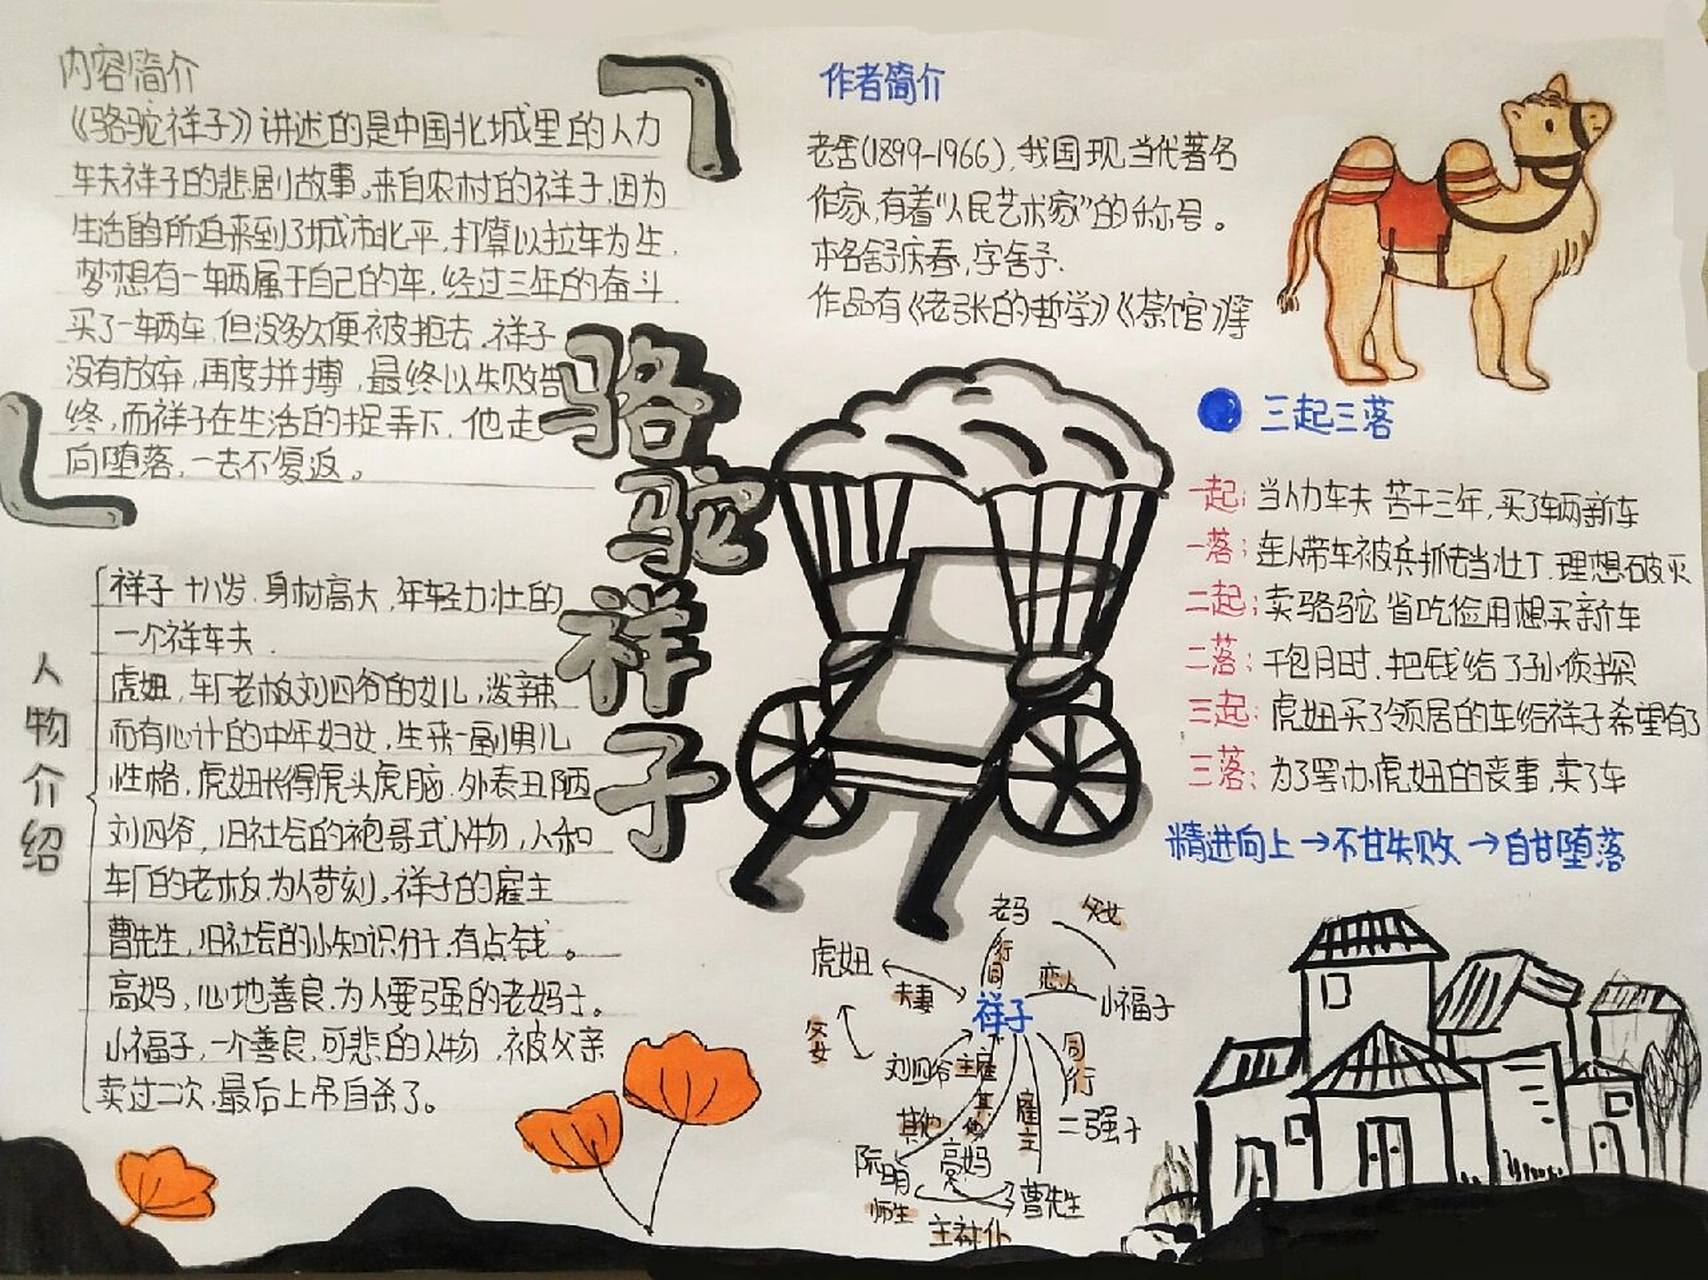 内容简介
《骆驼祥子》讲述的是中国北城里的人力
车夫祥子的悲剧故事。来自农村的祥子,因为
生活的所迫来到了城市北平,打算以拉车为生,
梦想有一辆属于自己的车,经过三年的奋斗,
买了一辆车,但没多久便被抢去,祥子
没有放弃,再度拼搏,最终以失败告
终,而祥子在生活的捉弄下,他走
向堕落,一去不复返。
骆驼祥子
人物介绍
祥子 十八岁,身材高大,年轻力壮的
一个祥车夫.
虎妞,车厂老板刘四爷的女儿,泼辣
而有心计的中年妇女,生来一副男儿
性格,虎妞长得虎头虎脑.外表丑陋
刘四爷,旧社会的袍哥式人物,人和
车厂的老板.为人苛刻,祥子的雇主
曹先生,旧社会的小知识分子,有点钱。
高妈,心地善良.为人要强的老妈子。
小福子,一个善良,可悲的人物,被父亲
卖过二次,最后上吊自杀了。
作者简介
老舍(1899-1966),我国现当代著名
作家,有着“人民艺术家”的称号。
本名舒庆春,字舍予.
作品有《老张的哲学》《茶馆》等
三起三落
一起:当人力车夫 苦干三年,买了车两新车
一落:连人带车被兵抓去当壮丁,理想破灭
二起:卖骆驼 省吃俭用想买新车
二落:干包月时,把钱给了孙侦探
三起:虎妞买了领居的车给祥子希望有了
三落:为了罢办虎妞的丧事,卖了车
精进向上→不甘失败→自甘堕落
老马
父女
同行
虎妞
夫妻
恋人
小福子
祥子
父女
刘四爷
主雇
同行
其他
其他
雇主
二强子
阮明
高妈
曹先生
师生